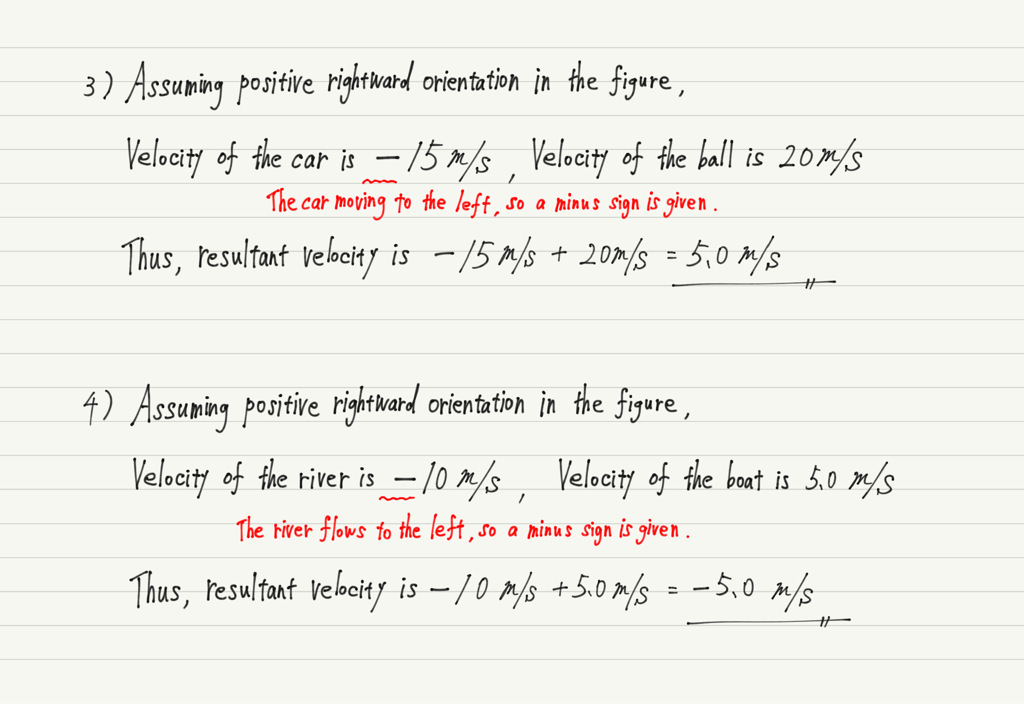 3) Assuming positive rightward orientation in the figure,
Velocity of the car is -15 m/s, Velocity of the ball is 20 m/s
The car moving to the left, so a minus sign is given.
Thus, resultant velocity is -15 m/s + 20 m/s = 5.0 m/s
4) Assuming positive rightward orientation in the figure,
Velocity of the river is -10 m/s, Velocity of the boat is 5.0 m/s
The river flows to the left, so a minus sign is given.
Thus, resultant velocity is -10 m/s + 5.0 m/s = -5.0 m/s